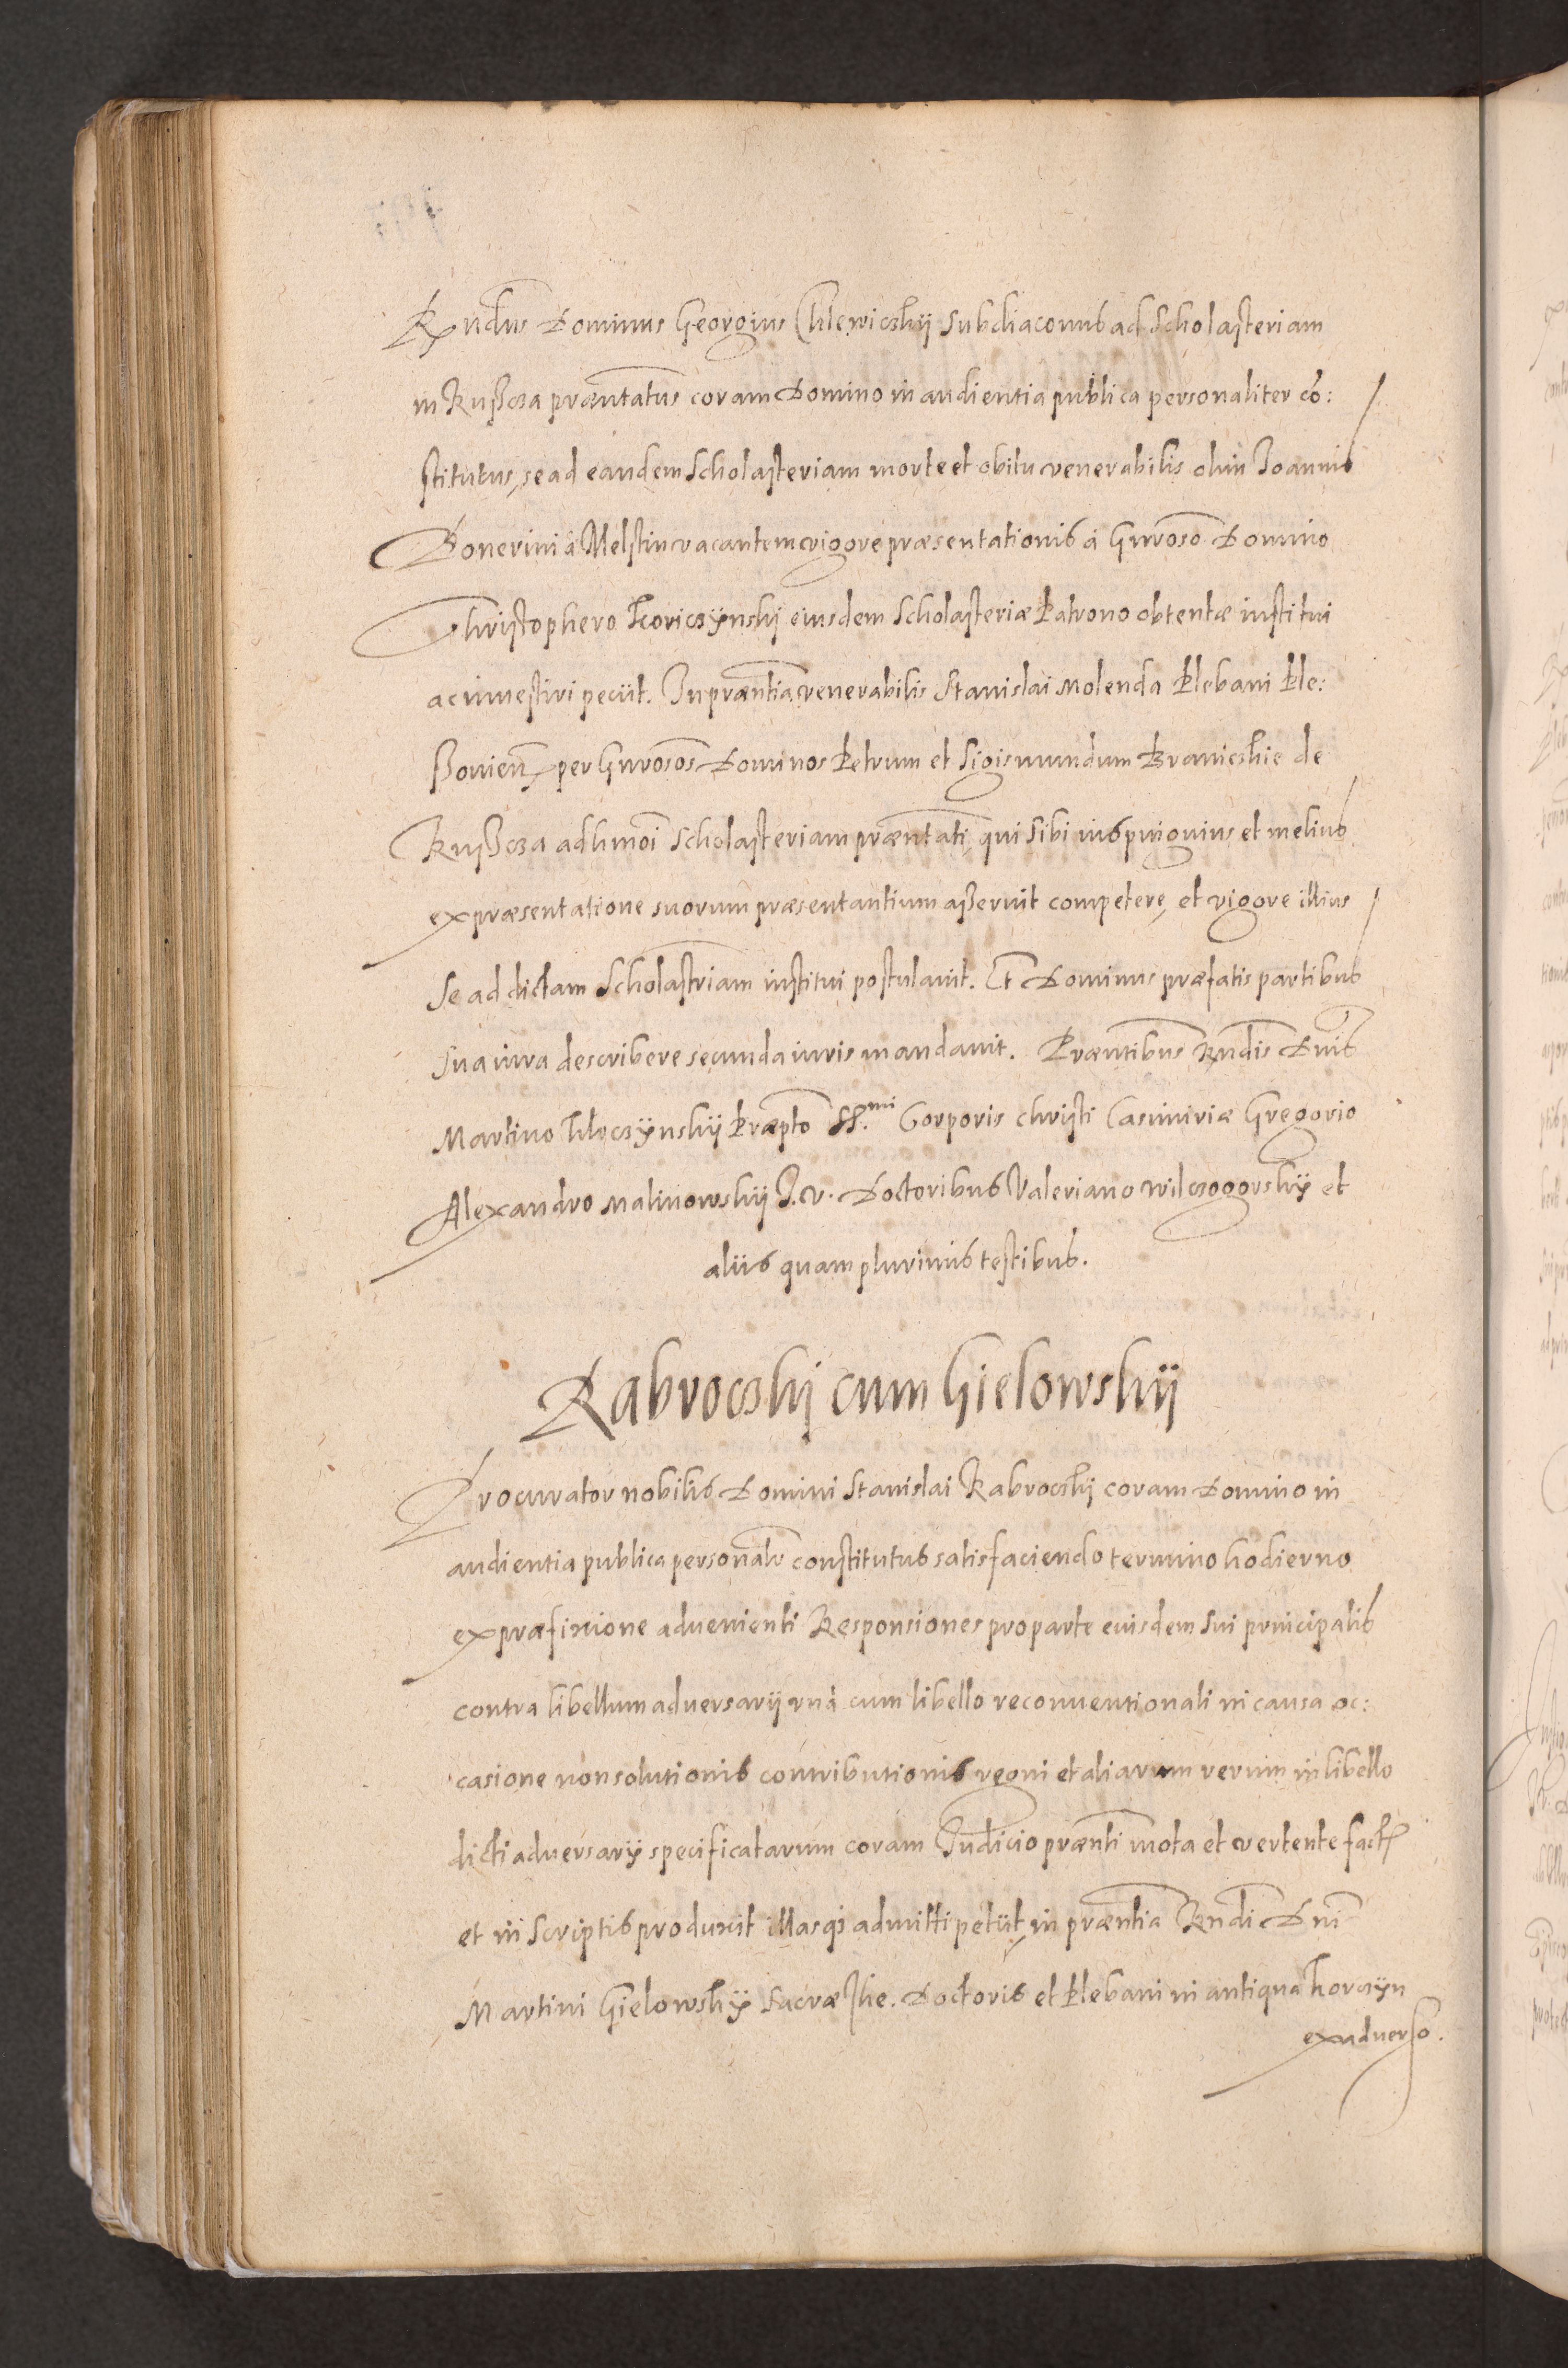 Rndus Dominus Georgius Chlewiczkij Subdiaconus ad Scholasteriam
in Rusßcza præntatus coram Domino in audientia publica personaliter co:
stitutus, se ad eandem Scholasteriam morte et obitu venerabilis olim Joannis
Bonerini à Melstin vacantem vigore præsentationis à Gnroso Domino
Christophero Koriczÿnskj eiusdem Scholasteriæ Patrono obtentæ institui
ac investiri peciit. In præntia venerabilis Stanislai Molenda Plebani Ple:
ßovien, per Gnrosos Dominos Petrum et Sigismundum Branicskie de
Rusßcza ad hmoi Scholasteriam præntati, qui sibi ius pinguius et melius
ex præsentatione suorum præsentantium aßeruit competere, et vigore illius
Se ad dictam Scholastriam institui postulavit. Et Dominus præfatis partibus
sua iura describere secunda iuris mandavit. Præntibus Rndis Dnis
Martino Kloczÿnskij Præpto SS.mi Corporis Christi Casimiriæ Gregorio
Alexandro Malinowskij J.V. Doctoribus Valeriano Wilczogorskÿ et
aliis quam plurimis testibus.
Rabroczkj cum Gielowskij
Procurator nobilis Domini Stanislai Rabroczkij coram Domino in
audientia publica personalr constitutus satisfaciendo termino hodierno
ex præfixione advenienti Responsiones pro parte eiusdem sui principalis
contra libellum adversarij unà cum libello reconventionali in causa oc:
casione non solutionis contributionis regni et aliarum rerum in libello
dicti adversarÿ specificatarum coram Judicio prænti mota et vertente fact
et in Scriptis produxit illasqz admitti petiit, in præntia Rndi Dni
Martini Gielowskÿ Sacræ The. Doctoris et Plebani in antiqua Korczÿn
ex adverso.